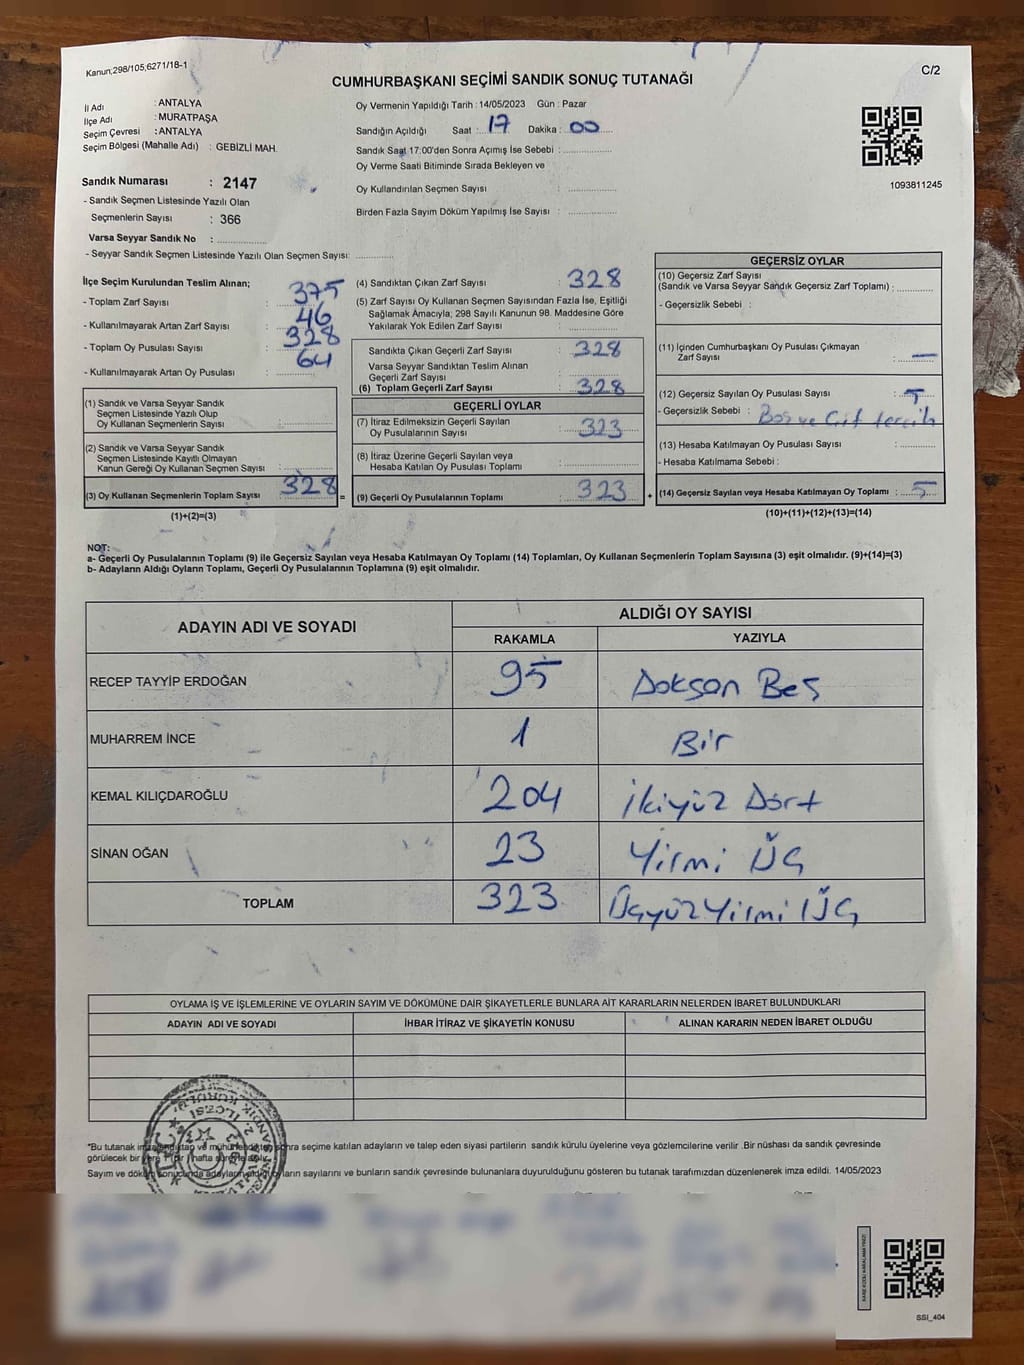 Kanun;298/105,6271/18-1
C/2
CUMHURBAŞKANI SEÇİMİ SANDIK SONUÇ TUTANAĞI
İl Adı : ANTALYA
İlçe Adı : MURATPAŞA
Seçim Çevresi : ANTALYA
Seçim Bölgesi (Mahalle Adı) : GEBİZLİ MAH.
Oy Vermenin Yapıldığı Tarih : 14/05/2023 Gün : Pazar
Sandığın Açıldığı Saat : 17 Dakika : 00
Sandık Saat 17:00'den Sonra Açımış İse Sebebi :
Oy Verme Saati Bitiminde Sırada Bekleyen ve
Oy Kullandırılan Seçmen Sayısı :
Birden Fazla Sayım Döküm Yapılmış İse Sayısı :
1093811245
Sandık Numarası : 2147
- Sandık Seçmen Listesinde Yazılı Olan
Seçmenlerin Sayısı : 366
Varsa Seyyar Sandık No :
- Seyyar Sandık Seçmen Listesinde Yazılı Olan Seçmen Sayısı:
İlçe Seçim Kurulundan Teslim Alınan;
- Toplam Zarf Sayısı : 375
- Kullanılmayarak Artan Zarf Sayısı : 46
- Toplam Oy Pusulası Sayısı : 328
- Kullanılmayarak Artan Oy Pusulası : 64
(1) Sandık ve Varsa Seyyar Sandık
Seçmen Listesinde Yazılı Olup
Oy Kullanan Seçmenlerin Sayısı :
(2) Sandık ve Varsa Seyyar Sandık
Seçmen Listesinde Kayıtlı Olmayan
Kanun Gereği Oy Kullanan Seçmen Sayısı :
(3) Oy Kullanan Seçmenlerin Toplam Sayısı : 328 =
(1)+(2)=(3)
(4) Sandıktan Çıkan Zarf Sayısı : 328
(5) Zarf Sayısı Oy Kullanan Seçmen Sayısından Fazla İse, Eşitliği
Sağlamak Amacıyla, 298 Sayılı Kanunun 98. Maddesine Göre
Yakılarak Yok Edilen Zarf Sayısı :
Sandıkta Çıkan Geçerli Zarf Sayısı : 328
Varsa Seyyar Sandıktan Teslim Alınan
Geçerli Zarf Sayısı :
(6) Toplam Geçerli Zarf Sayısı : 328
GEÇERLİ OYLAR
(7) İtiraz Edilmeksizin Geçerli Sayılan
Oy Pusulalarının Sayısı : 323
(8) İtiraz Üzerine Geçerli Sayılan veya
Hesaba Katılan Oy Pusulası Toplamı :
(9) Geçerli Oy Pusulalarının Toplamı : 323 +
GEÇERSİZ OYLAR
(10) Geçersiz Zarf Sayısı
(Sandık ve Varsa Seyyar Sandık Geçersiz Zarf Toplamı) :
- Geçersizlik Sebebi :
(11) İçinden Cumhurbaşkanı Oy Pusulası Çıkmayan
Zarf Sayısı : —
(12) Geçersiz Sayılan Oy Pusulası Sayısı : 5
- Geçersizlik Sebebi : Boş ve Çift tercih
(13) Hesaba Katılmayan Oy Pusulası Sayısı :
- Hesaba Katılmama Sebebi :
(14) Geçersiz Sayılan veya Hesaba Katılmayan Oy Toplamı : 5
(10)+(11)+(12)+(13)=(14)
NOT:
a- Geçerli Oy Pusulalarının Toplamı (9) ile Geçersiz Sayılan veya Hesaba Katılmayan Oy Toplamı (14) Toplamları, Oy Kullanan Seçmenlerin Toplam Sayısına (3) eşit olmalıdır. (9)+(14)=(3)
b- Adayların Aldığı Oyların Toplamı, Geçerli Oy Pusulalarının Toplamına (9) eşit olmalıdır.
ADAYIN ADI VE SOYADI
ALDIĞI OY SAYISI
RAKAMLA YAZIYLA
RECEP TAYYİP ERDOĞAN 95 Doksan Beş
MUHARREM İNCE 1 Bir
KEMAL KILIÇDAROĞLU 204 İkiyüz Dört
SİNAN OĞAN 23 Yirmi Üç
TOPLAM 323 Üçyüz Yirmi Üç
OYLAMA İŞ VE İŞLEMLERİNE VE OYLARIN SAYIM VE DÖKÜMÜNE DAİR ŞİKAYETLERLE BUNLARA AİT KARARLARIN NELERDEN İBARET BULUNDUKLARI
ADAYIN ADI VE SOYADI İHBAR İTİRAZ VE ŞİKAYETİN KONUSU ALINAN KARARIN NEDEN İBARET OLDUĞU
*Bu tutanak ve sonra seçime katılan adayların ve talep eden siyasi partilerin sandık kurulu üyelerine veya gözlemcilerine verilir .Bir nüshası da sandık çevresinde
görülecek bir hafta
Sayım ve döküm oyların sayılarını ve bunların sandık çevresinde bulunanlara duyurulduğunu gösteren bu tutanak tarafımızdan düzenlenerek imza edildi. 14/05/2023
SSİ_404